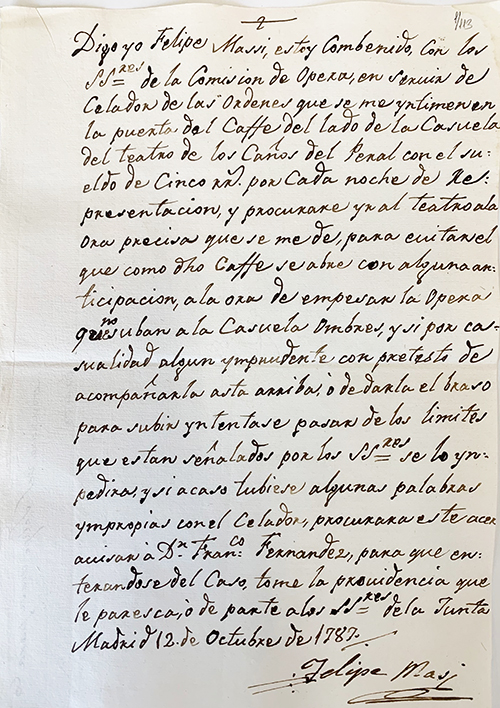 2
1/113
Digo yo Felipe Massi, estoy Combenido, Con los
SSres de la Comision de Opera, en seruir de
Celador de las Ordenes que se me yntimen en
la puerta del Caffe del lado de la Casuela
del teatro de los Caños del Peral con el su-
eldo de Cinco rrs. por Cada noche de Re-
presentacion, y procurare yr al teatro ala
Ora precisa que se me de, para euitar el
que como dho Caffe se abre con alguna an-
ticipacion, a la ora de empesar la Opera
que no suban a la Casuela Ombres, y si por ca-
sualidad algun ymprudente con pretesto de
acompañarla asta arriba, ó de darla el braso
para subir yntentase pasar de los limites
que estan señalados por los SSres se lo yn-
pedira, y si acaso tubiese algunas palabras
ympropias con el Celador, procurara este acer
auisar à Dn Franco Fernandez, para que en-
terandose del Caso, tome la prouidencia que
le paresca, ó de parte a los SSres de la Junta
Madrid 12 de Octubre de 1787.
Felipe Masi